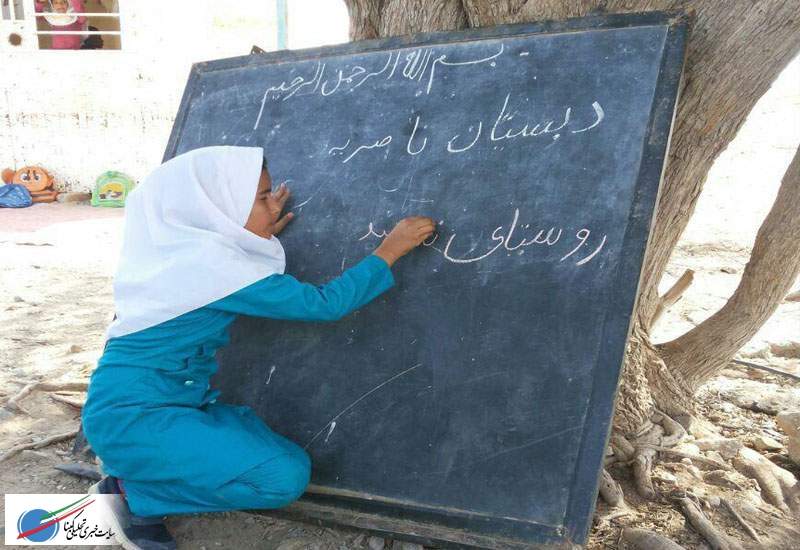 بسم الله الرحمن الرحیم
دبستان ناصریه
روستای
سایت خبری تحلیلی گهنا